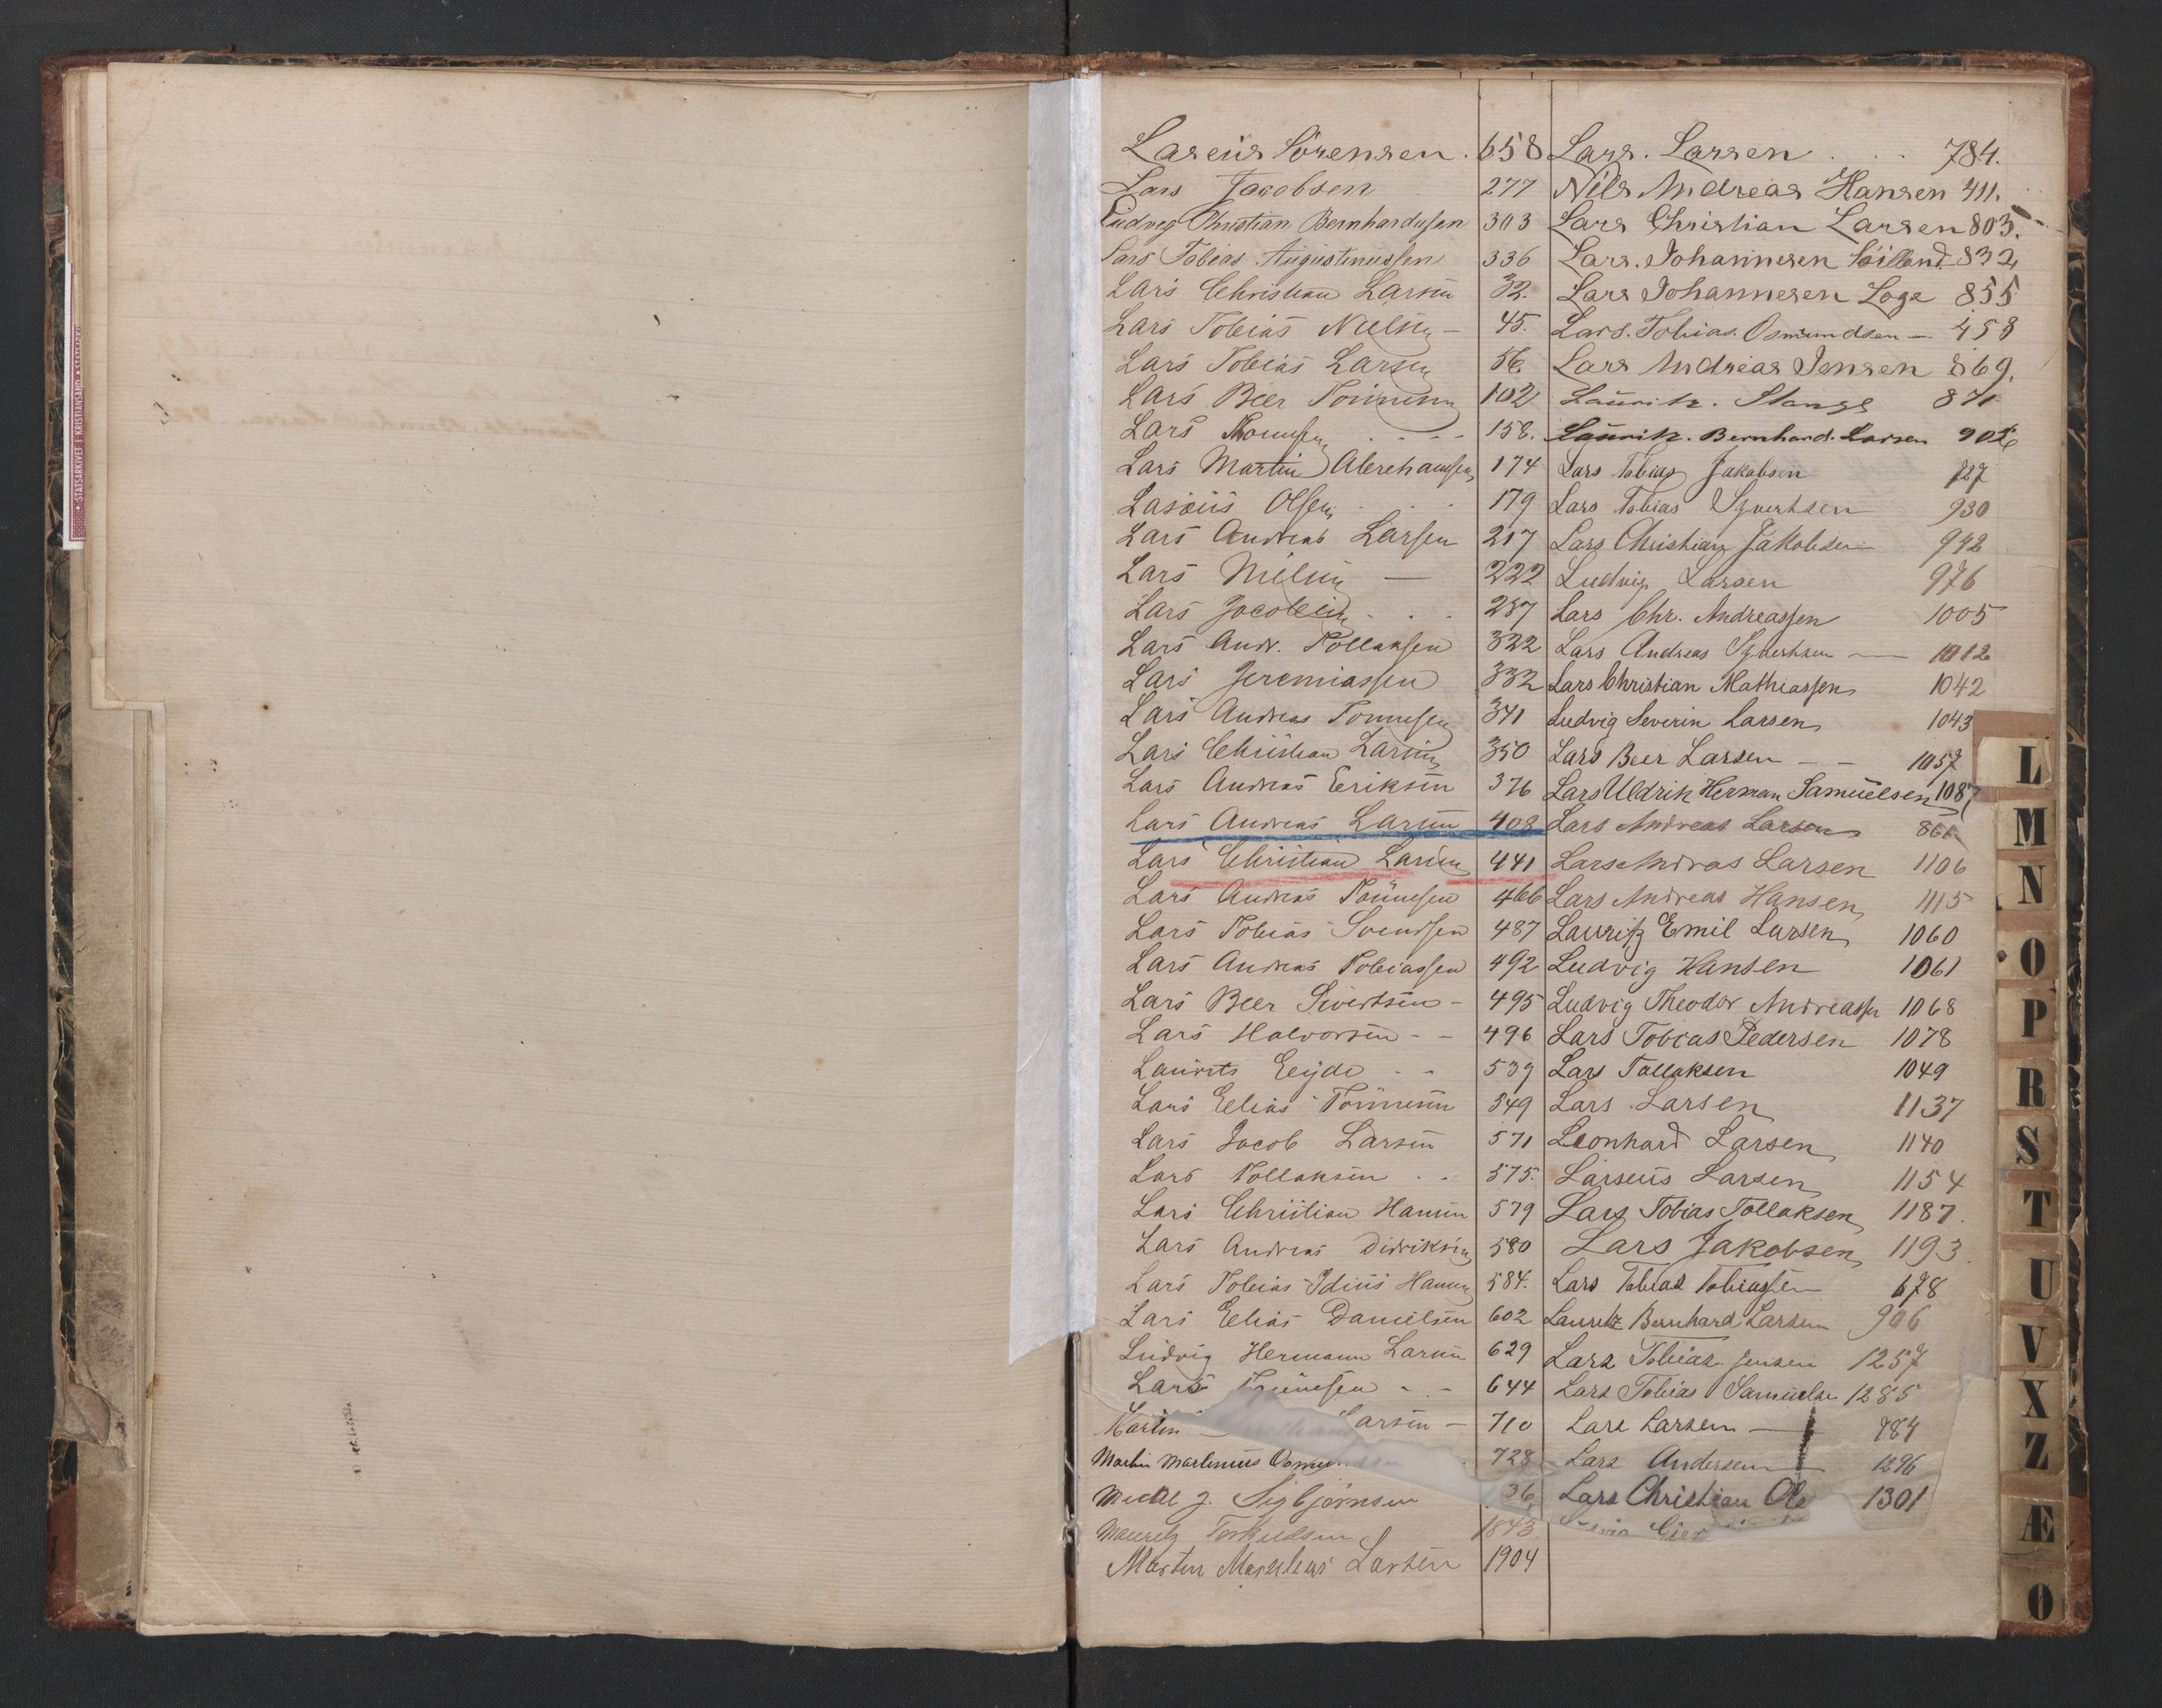 Laseüs Sörensen. 658
Lars Jacobsen 277
Ludvig Christian Bernhardusen 303
Lars Tobias Augustinussen 336
Lars Christian Larsen 32.
Lars Tobias Nielsen - 45.
Lars Tobias Larsen 56.
Lars Beer Tönnesen 102
Lars 158.
Lars Martin Abrahamsen 174
Laseüs Olsen 179
Lars Andreas Larsen 217
Lars Nielsen — 222
Lars Jacobsen 237
Lars Andr. Tollaksen 322
Lars Jeremiassen 332
Lars Andreas Tönnesen 341
Lars Christian Larsen 350
Lars Andreas Eriksen 376
Lars Andreas Larsen 408
Lars Christian Larsen 441
Lars Andreas Tönnesen 466
Lars Tobias Svendsen 487
Lars Andreas Tobiassen 492
Lars Beer Sivertsen - 495
Lars Halvorsen - - 496
Laurits Eeyde - - 539
Lars Elias Tönnesen 549
Lars Jacob Larsen 571
Lars Tollaksen . . 575.
Lars Christian Hansen 579
Lars Andreas Didriksen 580
Lars Tobias Idüüs Hansen 584.
Lars Elias Danielsen 602
Ludvig Hermann Larsen 629
Lars Tönnesen - - 644
Martin Larsen — 710
Martin Martinius 728
J. Sigbjörnsen 36
Torkildsen 1843
Martin Larsen 1904
Lars. Larsen 784.
Nils Andreas Hansen 411.
Lars Christian Larsen 803.
Lars. Johannesen 832
Lars Johannesen Loge 855
Lars. Tobias. Osmundsen — 458
Lars Andreas Jensen 869.
Lauritz. Stange 871
Lauritz. Bernhard. Larsen 906
Lars Tobias Jakobsen 727
Lars Tobias Syvertsen 930
Lars Christian Jakobsen 942
Ludvig Larsen 976
Lars Chr. Andreassen 1005
Lars Andreas Syvertsen — 1012
Lars Christian Mathiassen 1042
Ludvig Severin Larsen 1043
Lars Beer Larsen - - 1057
Lars Uldrik Herman Samuelsen 1087
Lars Andreas Larsen 861
Lars Andreas Larsen 1106
Lars Andreas Hansen 1115
Lauritz Emil Larsen 1060
Ludvig Hansen 1061
Ludvig Theodor Andreassen 1068
Lars Tobias Pedersen 1078
Lars Tallaksen 1049
Lars Larsen 1137
Leonhard Larsen 1140
Larseüs Larsen 1154
Lars Tobias Tollaksen 1187.
Lars Jakobsen 1193
Lars Tobias Tobiassen 678
Lauritz Bernhard Larsen 906
Lars Tobias Jensen 1257
Lars Tobias Samuelsen 1285
Lars Larsen — 784
Lars Andersen 1296
Lars Christian Ols 1301
L
M
N
O
P
R
S
T
U
V
X
Z
Æ
Ø
STATSARKIVET I KRISTIANSAND